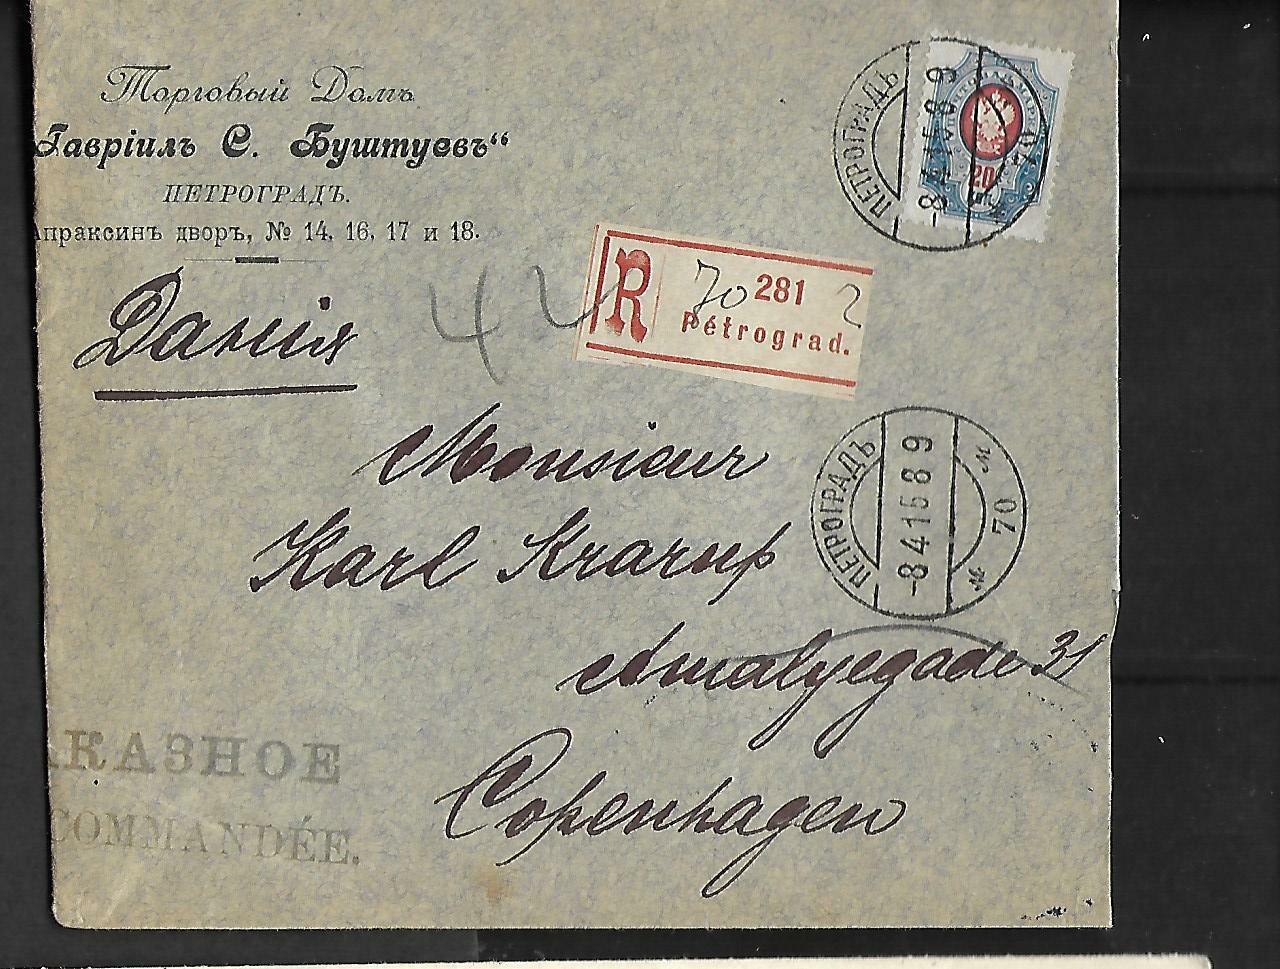 Торговый Домъ
Гавріилъ С. Буштуевъ“
ПЕТРОГРАДЪ.
Апраксинъ дворъ, № 14, 16, 17 и 18.
ПЕТРОГРАДЪ
-8 4 15 8 9
70
20
Данія
42
R 70 281 2
Pétrograd.
Monsieur
Karl Krarup
ПЕТРОГРАДЪ
-8 4 15 8 9
70
Amalyegade 31
Copenhagen
АКАЗНОЕ
COMMANDÉE.